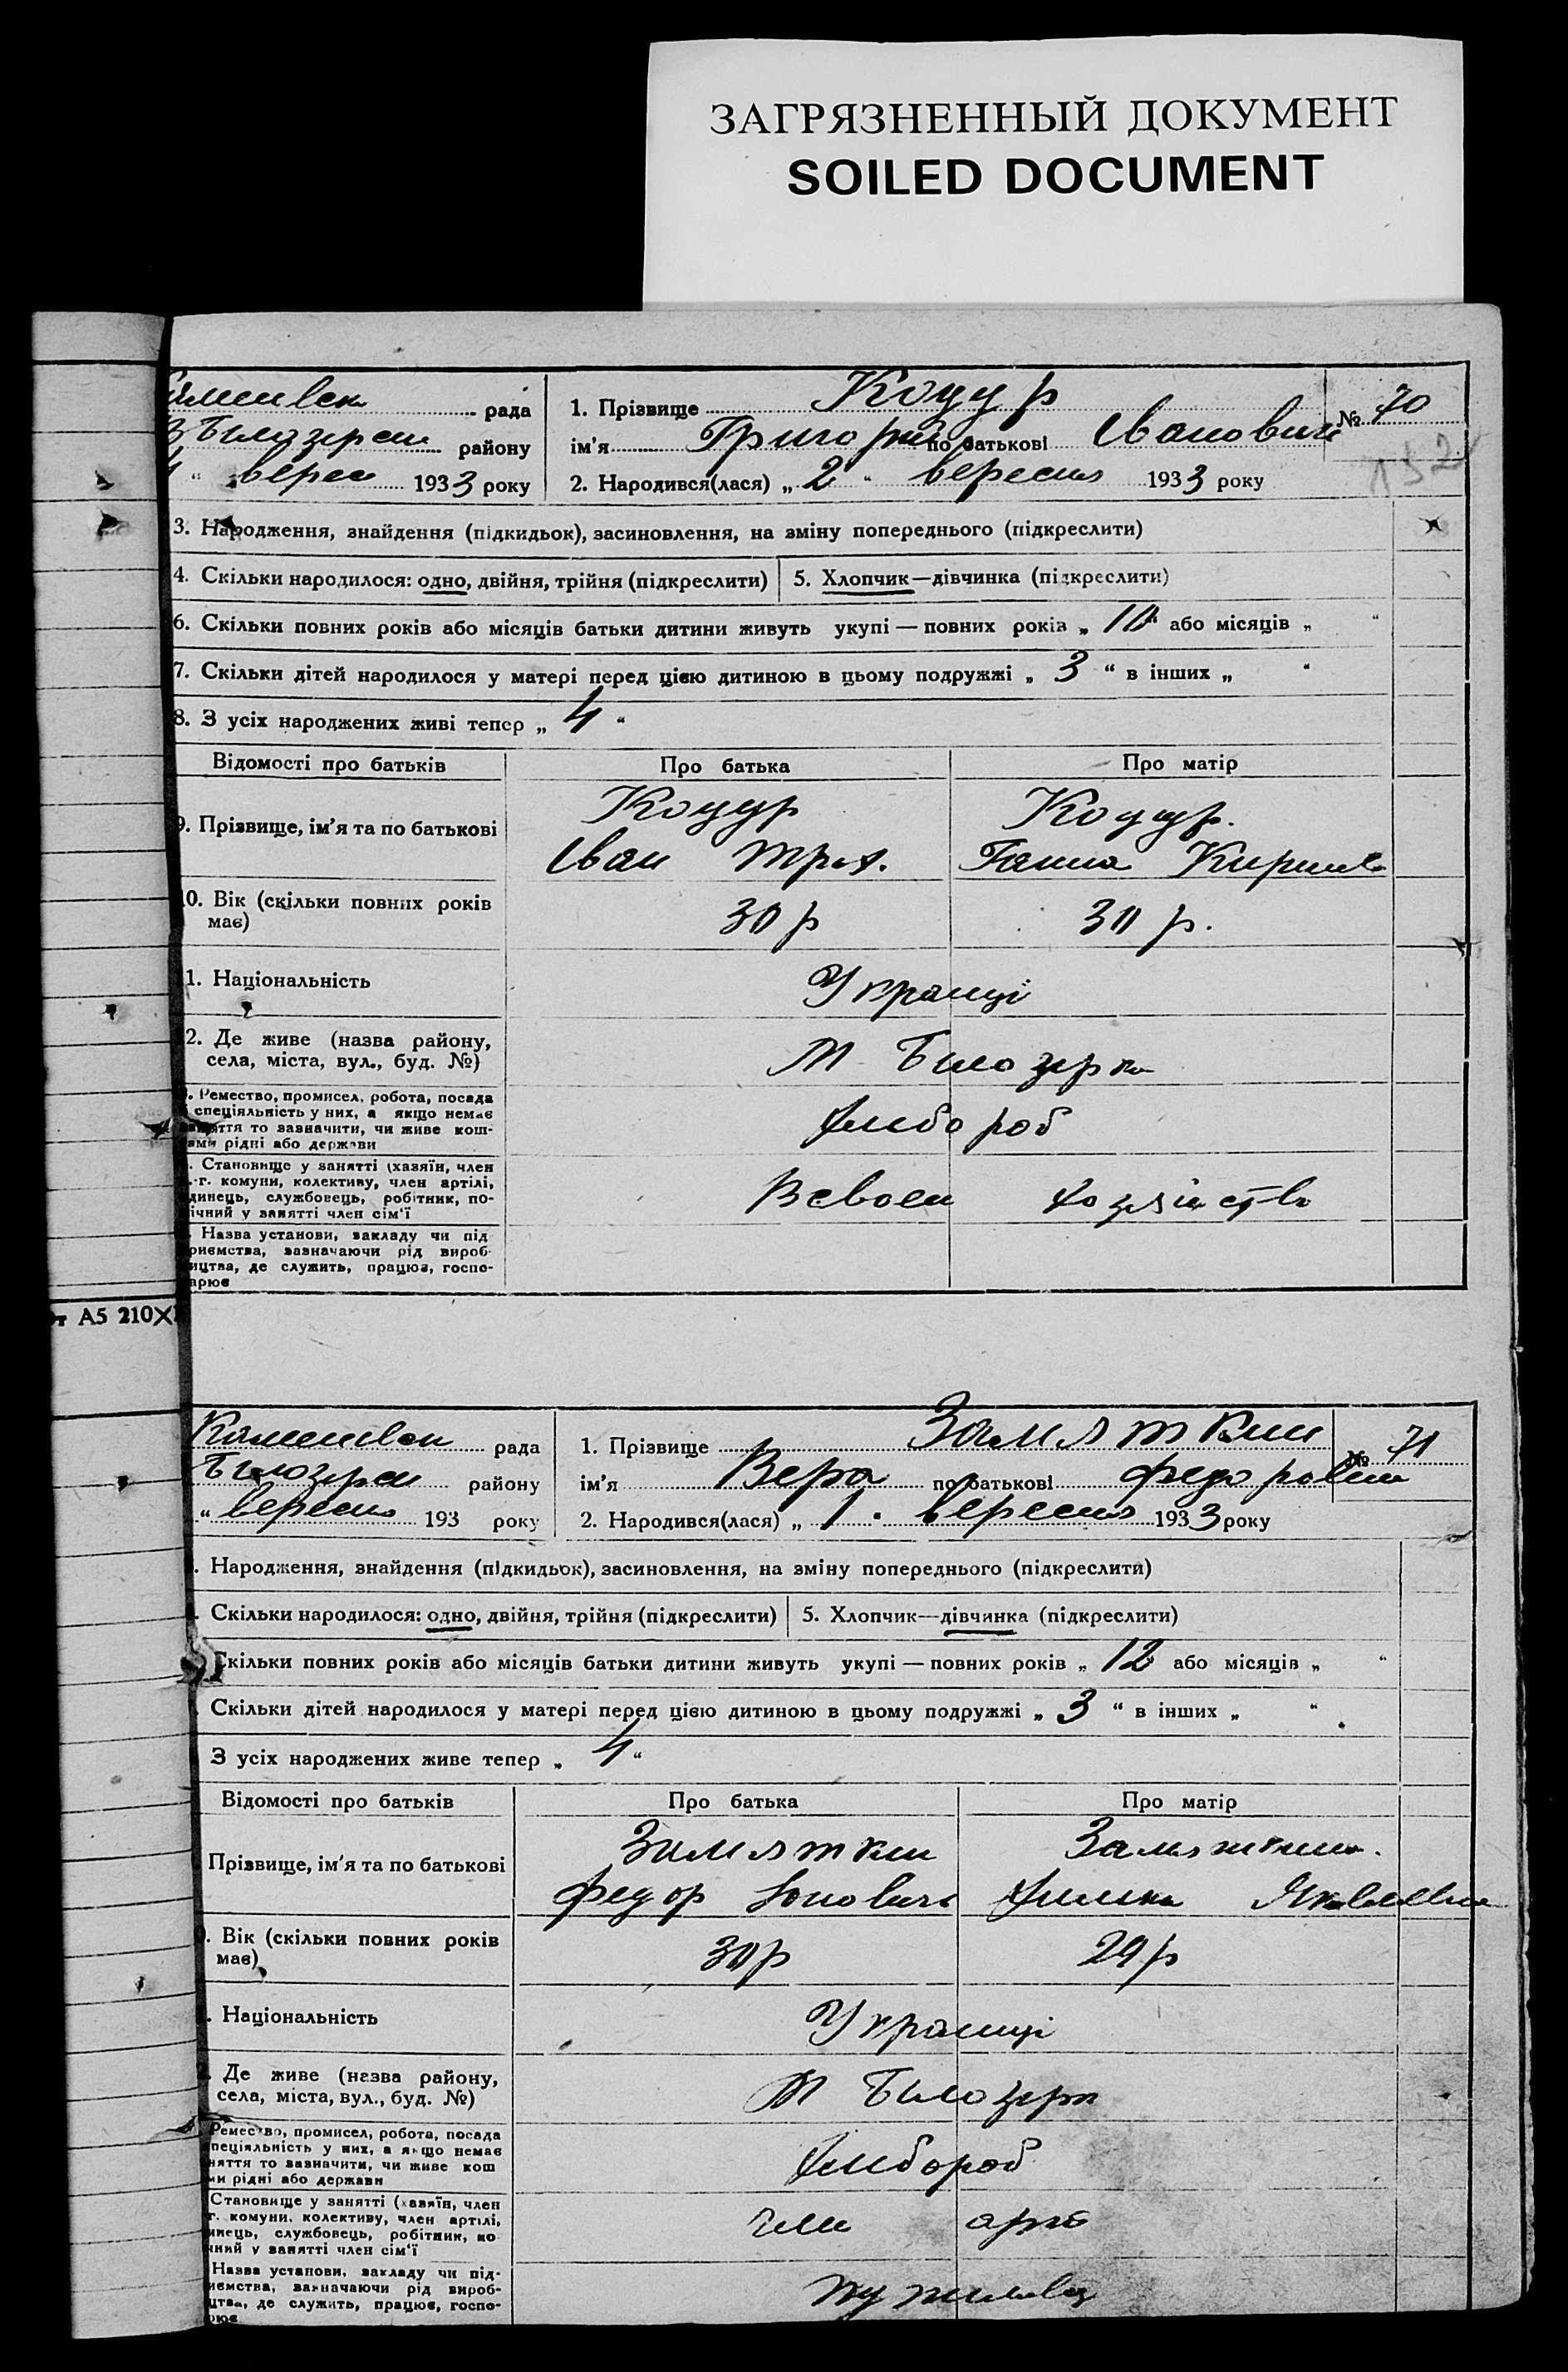 ЗАГРЯЗНЕННЫЙ ДОКУМЕНТ
SOILED DOCUMENT
рада
району
верес 1933 року
1. Прізвище Коцур
ім'я Григорий по батькові Іванович
2. Народився(лася) „ 2 “ вересня 1933 року
№ 70
132
3. Народження, знайдення (підкидьок), засиновлення, на зміну попереднього (підкреслити)
4. Скільки народилося: одно, двійня, трійня (підкреслити)
5. Хлопчик—дівчинка (підкреслити)
6. Скільки повних років або місяців батьки дитини живуть укупі — повних років „ 10 “ або місяців „ “
7. Скільки дітей народилося у матері перед цією дитиною в цьому подружжі „ 3 “ в інших „ “
8. З усіх народжених живі тепер „ 4 “
Відомості про батьків
Про батька
Про матір
9. Прізвище, ім'я та по батькові
Коцур
Іван
Коцур.
Ганна
10. Вік (скільки повних років
має)
30 р
30 р.
1. Національність
Українці
2. Де живе (назва району,
села, міста, вул., буд. №)
М Білозерка
. Ремество, промисел, робота, посада
спеціяльність у них, а якщо немає
яття то зазначити, чи живе кош-
ами рідні або держави
хлибороб
. Становище у занятті (хазяїн, член
.-г. комуни, колективу, член артілі,
динець, службовець, робітник, по-
ічний у занятті член сім'ї
В своем хозяйств
Назва установи, закладу чи під
риємства, зазначаючи рід вироб-
ицтва, де служить, працює, госпо-
арює
т А5 210X
рада
району
“ вересня 193 року
1. Прізвище Замяткин
ім'я Вера по батькові Федоровна
2. Народився(лася) „ 1 “ вересня 1933 року
№ 71
. Народження, знайдення (підкидьок), засиновлення, на зміну попереднього (підкреслити)
. Скільки народилося: одно, двійня, трійня (підкреслити)
5. Хлопчик—дівчинка (підкреслити)
Скільки повних років або місяців батьки дитини живуть укупі — повних років „ 12 “ або місяців „ “
Скільки дітей народилося у матері перед цією дитиною в цьому подружжі „ 3 “ в інших „ “
З усіх народжених живе тепер „ 4 “
Відомості про батьків
Про батька
Про матір
Прізвище, ім'я та по батькові
Замяткин
Федор
Замяткина.
. Вік (скільки повних років
має)
30 р
29 р
. Національність
Українці
Де живе (назва району,
села, міста, вул., буд. №)
М Білозерк
Ремество, промисел, робота, посада
пеціяльність у них, а якщо немає
няття то зазначити, чи живе кош
ми рідні або держави
хлибороб
Становище у занятті (хазяїн, член
г. комуни, колективу, член артілі,
инець, службовець, робітник, по
чний у занятті член сім'ї
член арт
Назва установи, закладу чи під-
иємства, зазначаючи рід вироб-
цтва, де служить, працює, госпо-
рює